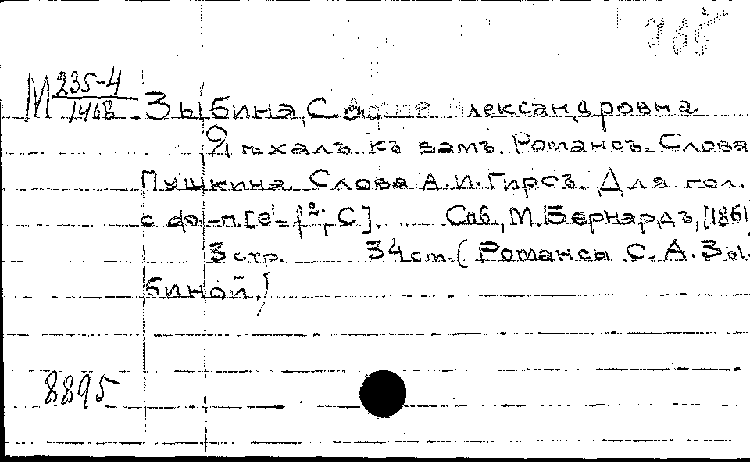 765
М 235-4
1468
Зыбина, Софья Александровна
Я ѣхалъ къ вамъ. Романсъ. Слова
Пушкина Слова А.И.Гирсъ. Для гол.
с фо-п. [e¹-f², C]. Спб, М.Бернардъ, [186
3 стр. 34 cm. (Романсы С. А. Зы-
биной.)
8895